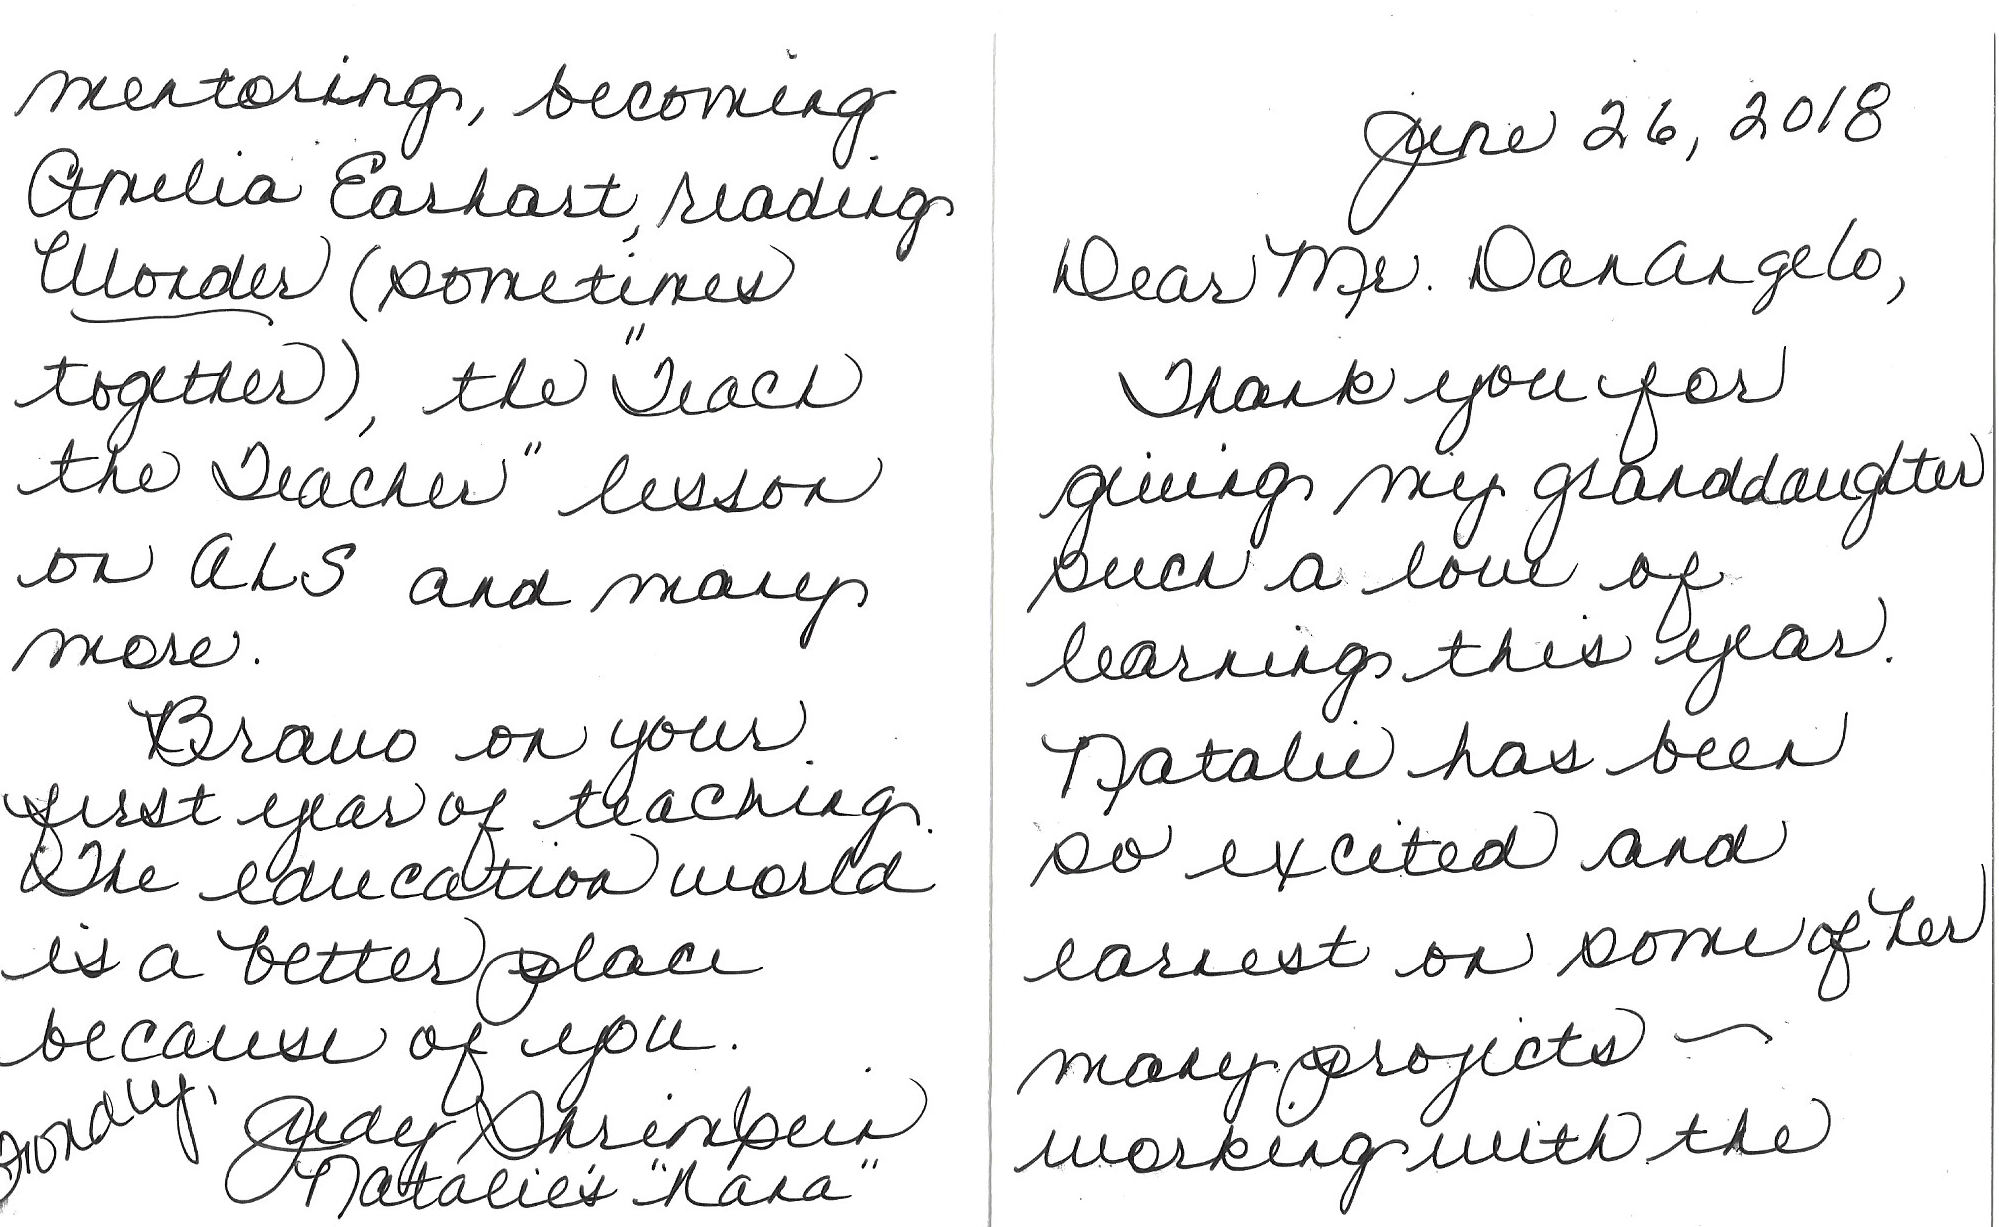 June 26, 2018
Dear Mr. Danangelo,
Thank you for
giving my granddaughter
such a love of
learning this year.
Natalie has been
so excited and
earnest on some of her
many projects —
working with the
mentoring, becoming
Amelia Earhart, reading
Wonder (sometimes
together), the "Teach
the Teacher" lesson
on ALS and many
more.
Bravo on your
first year of teaching.
The education world
is a better place
because of you.
Fondly,
Judy
Natalie's "Nana"